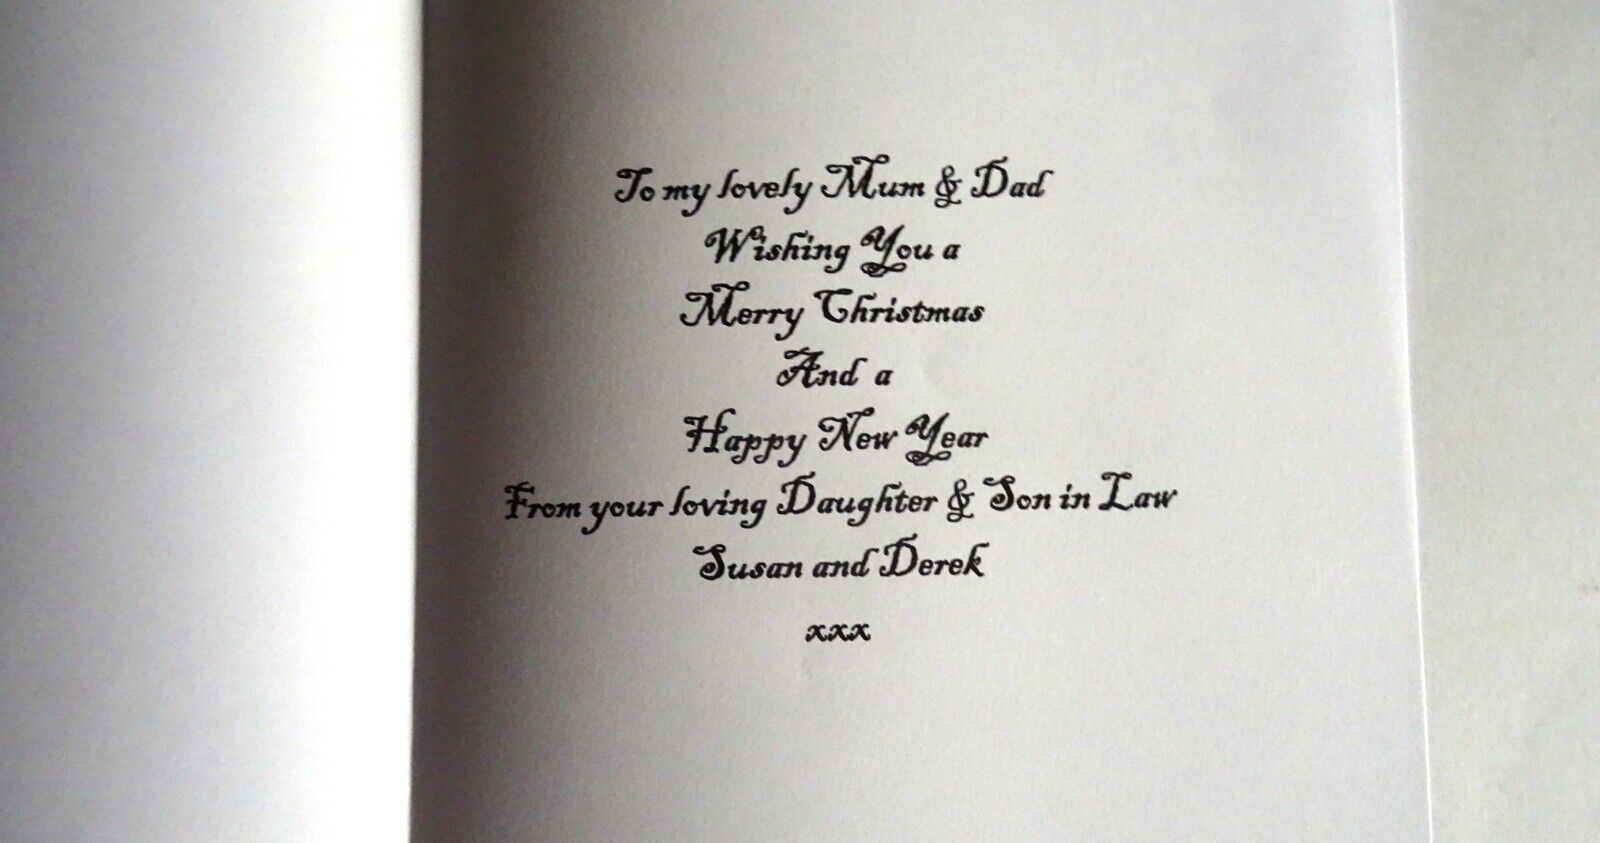 To my lovely Mum & Dad
Wishing You a
Merry Christmas
And a
Happy New Year
From your loving Daughter & Son in Law
Susan and Derek
xxx